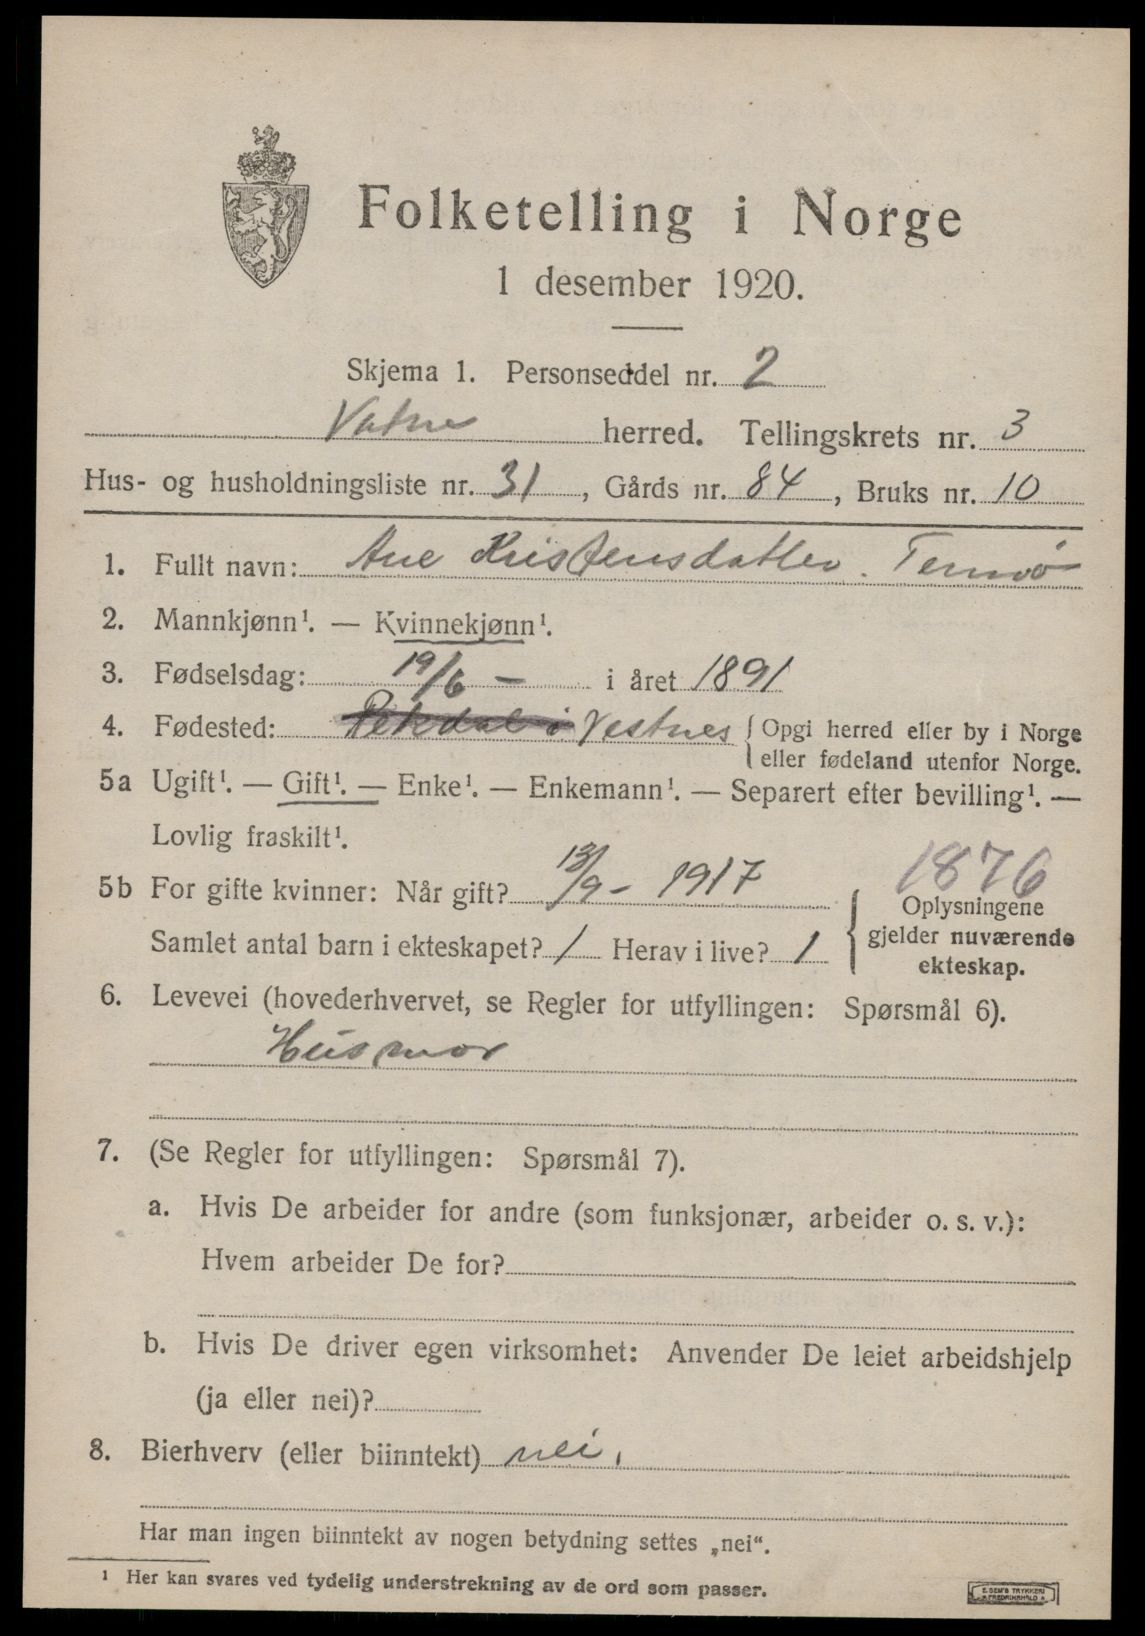 Folketelling i Norge
1 desember 1920.
Skjema 1. Personseddel nr. 2
Vatne herred. Tellingskrets nr. 3
Hus- og husholdningsliste nr. 31, Gårds nr. 84, Bruks nr. 10
1. Fullt navn: Ane Kristensdatter. Tennø
2. Mannkjønn¹. — Kvinnekjønn¹.
3. Fødselsdag: 19/6 - i året 1891
4. Fødested: Vestnes { Opgi herred eller by i Norge
eller fødeland utenfor Norge.
5a Ugift¹. — Gift¹. — Enke¹. — Enkemann¹. — Separert efter bevilling¹. —
Lovlig fraskilt¹.
5b For gifte kvinner: Når gift? 13/9 - 1917
1876
Oplysningene
Samlet antal barn i ekteskapet? 1 Herav i live? 1
gjelder nuværende
ekteskap.
6. Levevei (hovederhvervet, se Regler for utfyllingen: Spørsmål 6).
Husmor
7. (Se Regler for utfyllingen: Spørsmål 7).
a. Hvis De arbeider for andre (som funksjonær, arbeider o. s. v.):
Hvem arbeider De for?
b. Hvis De driver egen virksomhet: Anvender De leiet arbeidshjelp
(ja eller nei)?
8. Bierhverv (eller biinntekt) nei.
Har man ingen biinntekt av nogen betydning settes „nei“.
¹ Her kan svares ved tydelig understrekning av de ord som passer.